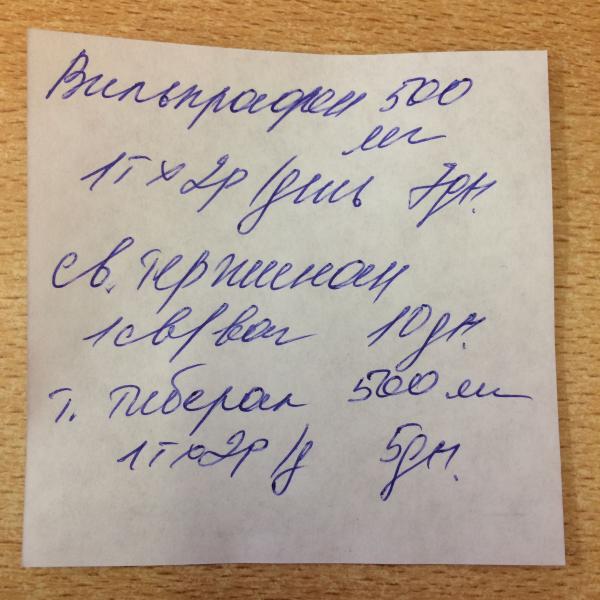 Вильпрафен 500
мг
1т х 2р/день 7дн.
св. Тержинан
1св/ваг 10дн.
т. Тиберал 500 мг
1т х 2р/д 5дн.